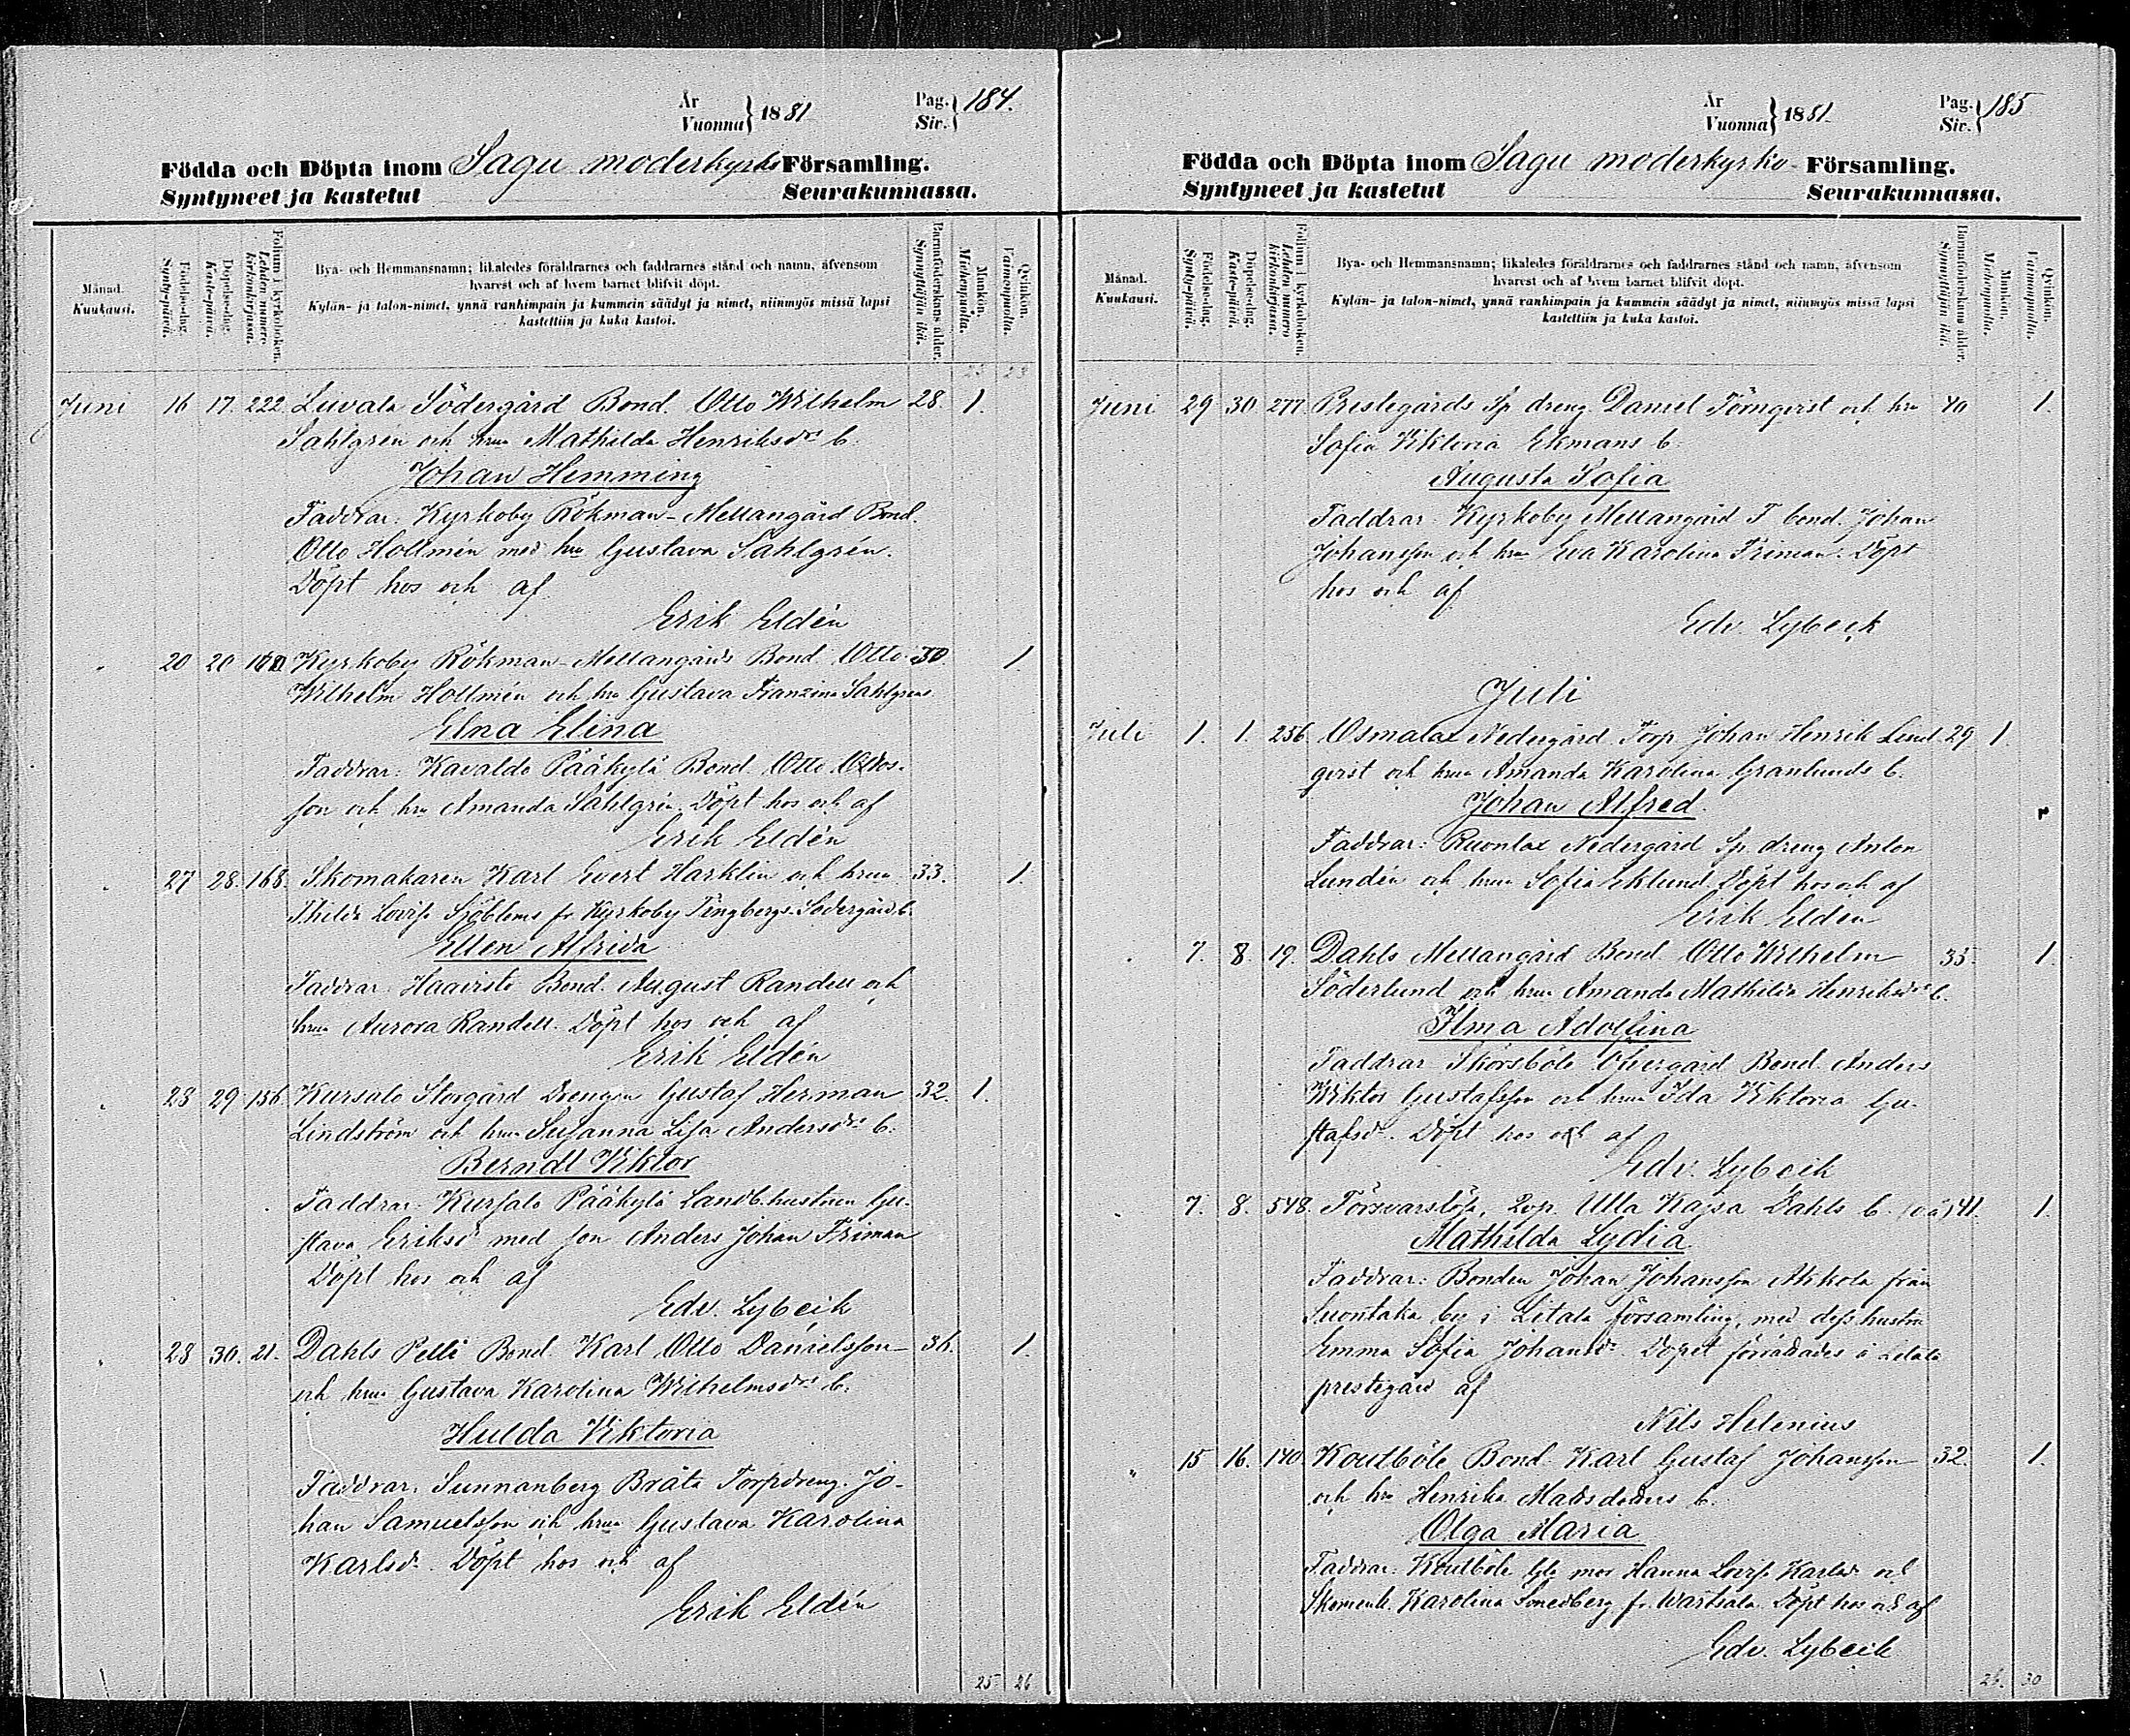 År
Vuonna } 1881
Pag.
Siv. } 184.
Födda och Döpta inom Sagu moderkyrko Församling.
Syntyneet ja kastetut Seurakunnassa.
Månad.
Kuukausi.
Födelse-dag.
Synty-päivä.
Döpelse-dag.
Kaste-päivä.
Folium i kyrkoboken.
Lehden numero kirkonkirjassa.
Bya- och Hemmansnamn; likaledes föräldrarnes och faddrarnes stånd och namn, äfvensom
hvarest och af hvem barnet blifvit döpt.
Kylän- ja talon-nimet, ynnä vanhimpain ja kummein säädyt ja nimet, niinmyös missä lapsi
kastettiin ja kuka kastoi.
Barnaföderskans ålder.
Synnyttäjän ikä.
Mankön.
Miehenpuolta.
Qvinkön.
Vaimonpuolta.
23 23
Juni 16 17. 222. Luvala Södergård Bond. Otto Wilhelm 28. 1.
Sahlgrén och hrun Mathilda Henriksdrs b.
Johan Hemming
Faddrar: Kyrkoby Rökman-Mellangård Bond.
Otto Hollmén med hru Gustava Sahlgrén.
Döpt hos och af
Erik Eldén
" 20 20 Kyrkoby Rökman-Mellangårds Bond Otto 30. 1.
Wilhelm Hollmén och hru Gustava Franzina Sahlgrens
Elna Elina
Faddrar: Kavaldo Pääkylä Bond. Otto Ottos-
son och hru Amanda Sahlgrén. Döpt hos och af
Erik Eldén
" 27 28. 168. Skomakaren Karl Evert Harklin och hrun 33. 1.
Thilda Lovisa Sjöbloms fr Kyrkoby Tengbergs-Södergård b.
Ellen Alfrida
Faddrar: Haaristo Bond. August Randell och
hrun Aurora Randell. Döpt hos och af
Erik Eldén
" 28 29 156. Kursalo Storgård Drengen Gustaf Herman 32. 1.
Lindström och hrun Susanna Lisa Andersdrs b.
Berndt Viktor
Faddrar: Kursalo Pääkylä Landb.hustrun Gu-
stava Eriksdr med son Anders Johan Friman
Döpt hos och af
Edv. Lybeck
" 28 30. 21. Dahls Pelli Bond. Karl Otto Danielsson 36. 1.
och hrun Gustava Karolina Wilhelmsdrs b.
Hulda Viktoria
Faddrar. Sunnanberg Bråta Torpdreng. Jo-
han Samuelsson och hrun Gustava Karolina
Karlsdr. Döpt hos och af
Erik Eldén
25 26
År
Vuonna } 1881.
Pag.
Siv. } 185
Födda och Döpta inom Sagu moderkyrko- Församling.
Syntyneet ja kastetut Seurakunnassa.
Månad.
Kuukausi.
Födelse-dag.
Synty-päivä.
Döpelse-dag.
Kaste-päivä.
Folium i kyrkoboken.
Lehden numero kirkonkirjassa.
Bya- och Hemmansnamn; likaledes föräldrarnes och faddrarnes stånd och namn, äfvensom
hvarest och af hvem barnet blifvit döpt.
Kylän- ja talon-nimet, ynnä vanhimpain ja kummein säädyt ja nimet, niinmyös missä lapsi
kastettiin ja kuka kastoi.
Barnaföderskans ålder.
Synnyttäjän ikä.
Mankön.
Miehenpuolta.
Qvinkön.
Vaimonpuolta.
Juni 29 30. 277. Prestegårds Sp dreng Daniel Törnqvist och hru 40 1.
Sofia Viktoria Ekmans b.
Augusta Sofia
Faddrar: Kyrkoby Mellangård F bond. Johan
Johansson och hru Eva Karolina Friman. Döpt
hos och af
Edv. Lybeck
Juli
Juli 1. 1. 256 Osmalax Nedergård Torp. Johan Henrik Lind- 29 1.
qvist och hrun Amanda Karolina Granlunds b.
Johan Alfred.
Faddrar: Ruonlax Nedergård Sp. dreng Anton
Lundén och hrun Sofia Eklund. Döpt hos och af
Erik Eldén
" 7. 8. 19. Dahls Mellangård Bond Otto Wilhelm 35. 1.
Söderlund och hrun Amanda Mathilda Henriksdrs b.
Ilma Adolfina
Faddrar Skörsböle Öfvergård Bond. Anders
Wiktor Gustafsson och hrun Ida Viktoria Gu-
stafsdr. Döpt hos och af
Edv. Lybeck
" 7. 8. 548. Försvarslösa, Ulla Kajsa Dahls b. (oä) 41. 1.
Mathilda Lydia
Faddrar: Bonden Johan Johansson Ahkola från
Suontaka by i Letala församling, med dess hustru
Emma Sofia Johansdr. Dopet förrättades i Letala
prestegård af
Nils Helenius
" 15 16. 140. Koutböle Bond. Karl Gustaf Johansson 32. 1.
och hru Henrika Matsdotters b.
Olga Maria
Faddrar: Koutböle mor Hanna Lovisa Karlsdr och
Karolina Smedberg fr. Wartsala. Döpt hos och af
Edv. Lybeck
26. 30